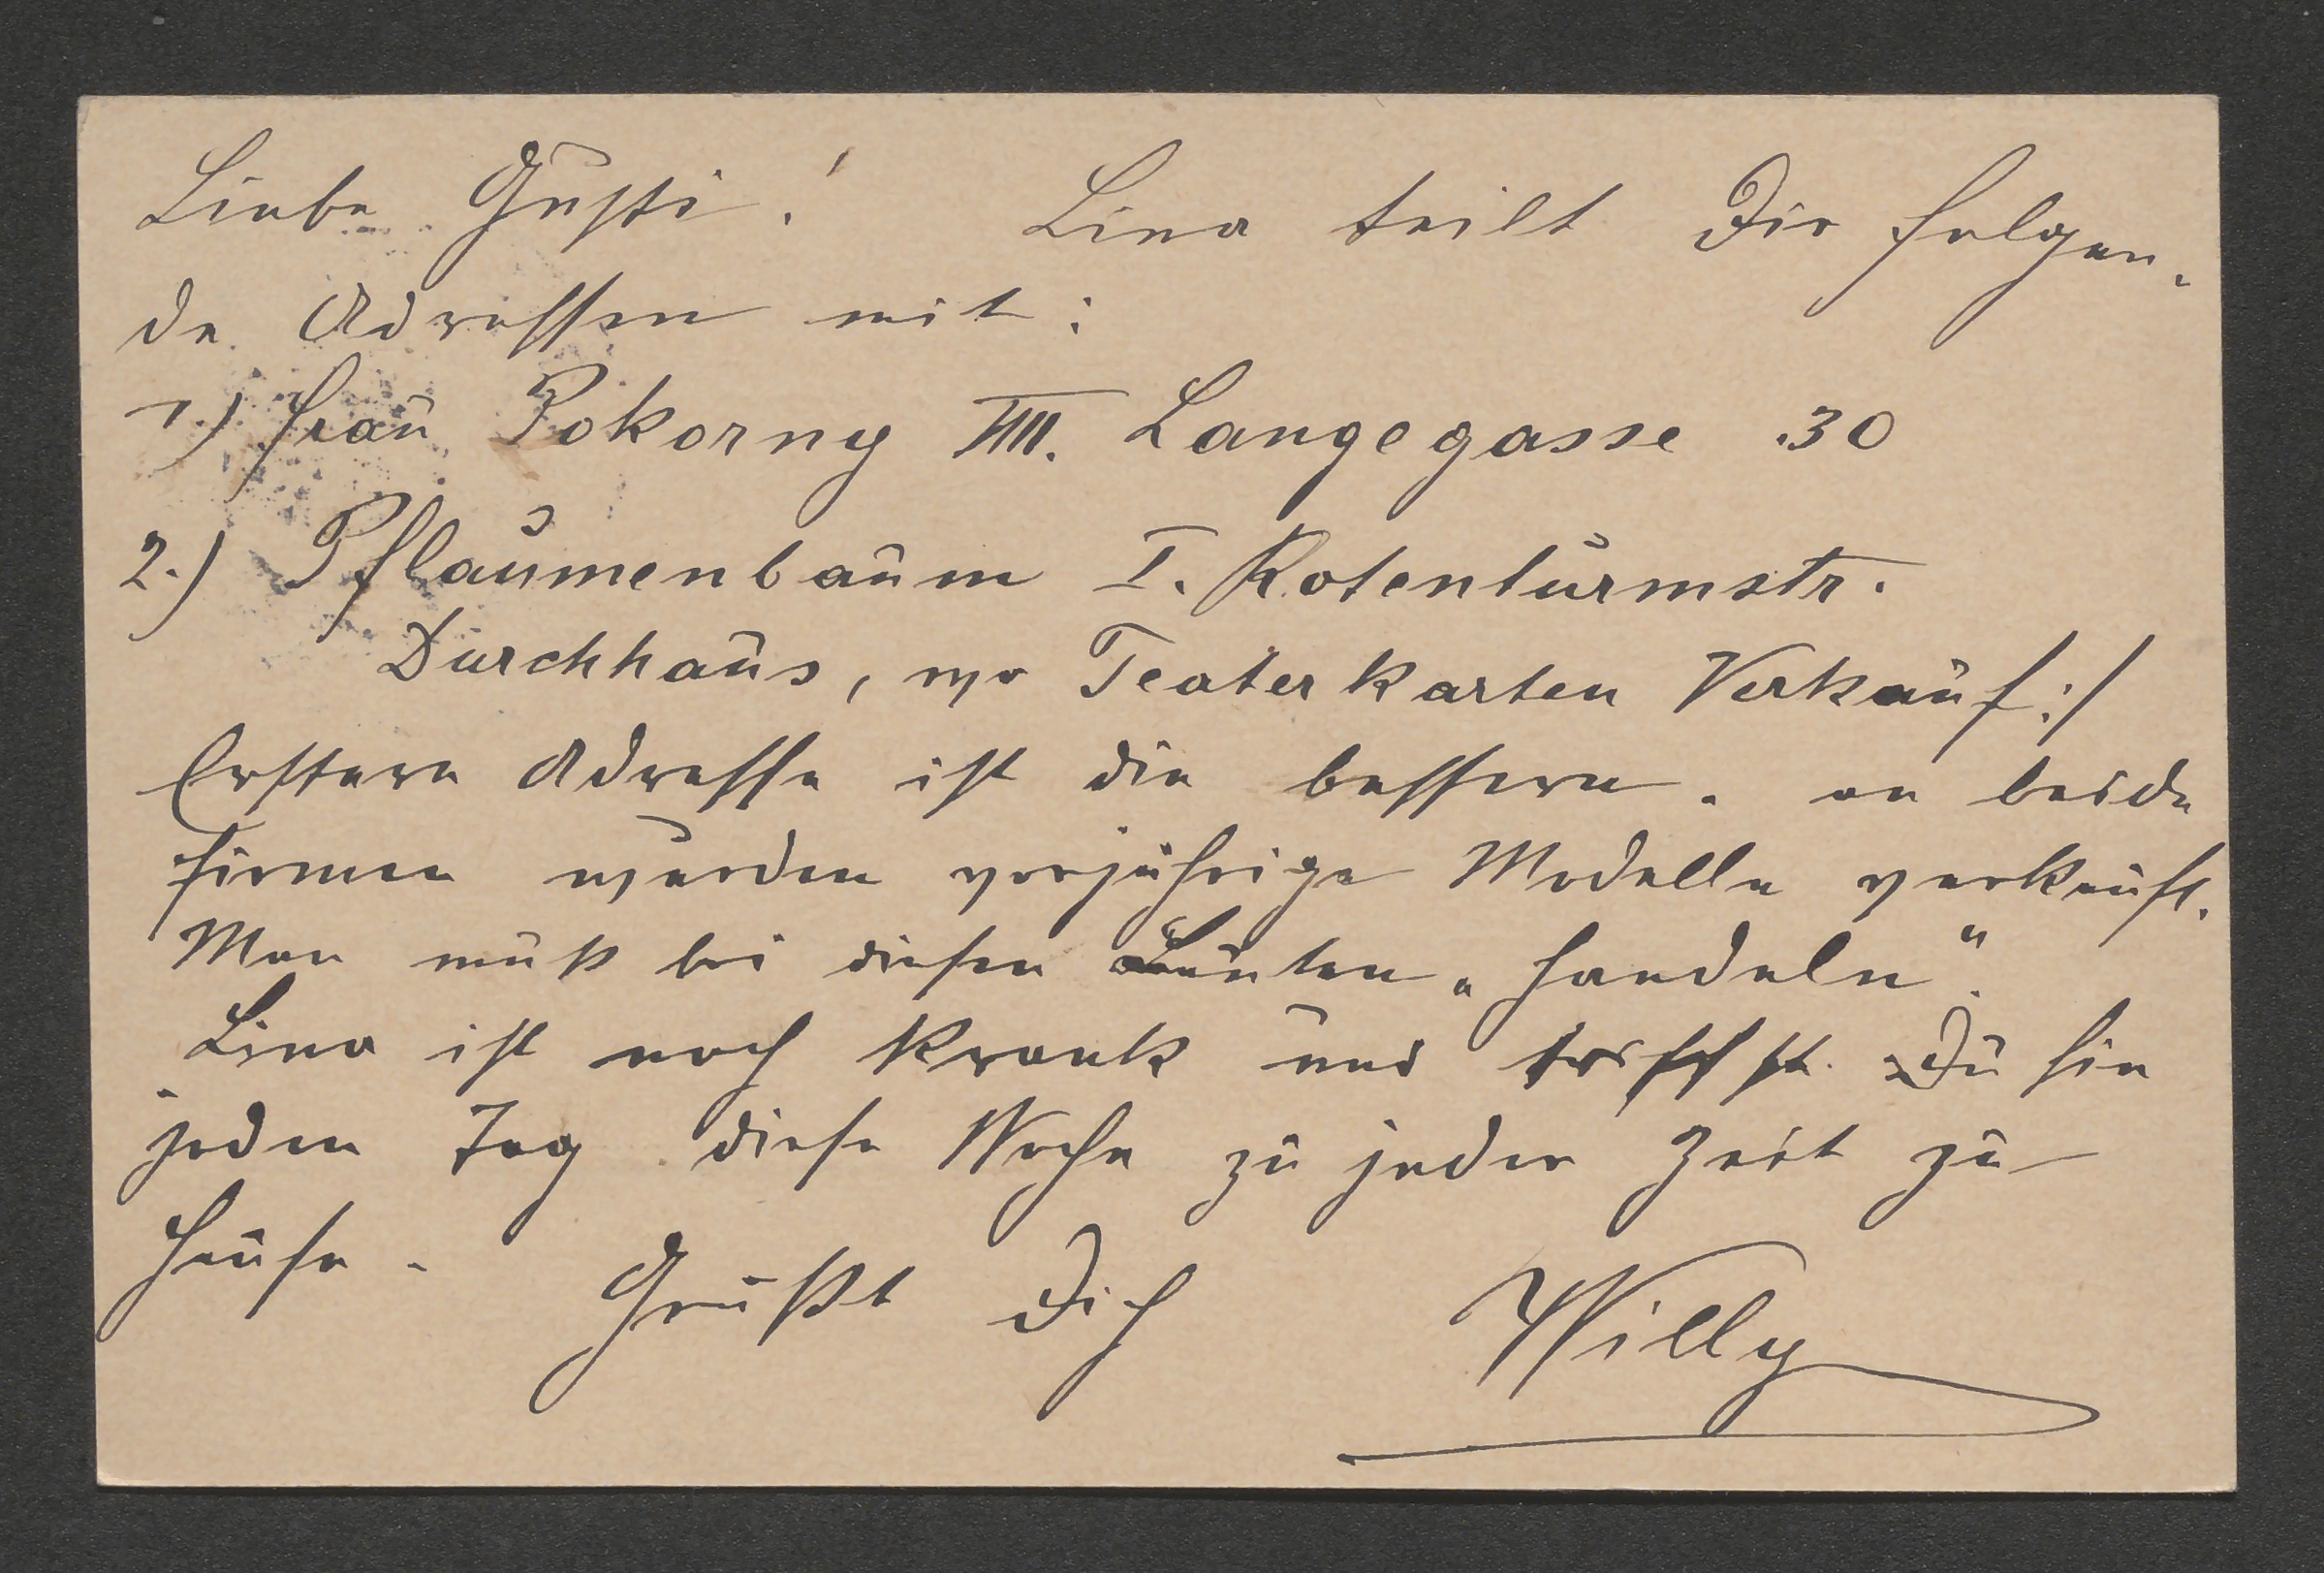 Liebe Gusti! Lina teilt Dir folgen-
de Adressen mit:
1.) Frau Pokorny VIII. Langegasse 30
2.) Pflaumenbaum I. Rotenturmstr.
Durchhaus, wo Teaterkarten Verkauf :/
Erstere Adresse ist die bessere. An beide
Firmen wurden vorjährige Modelle verkauft.
Man muß bei diesen Leuten „handeln“.
Lina ist noch krank und triffst Du sie
jeden Tag diese Woche zu jeder Zeit zu
Hause. Grüßt Dich Willy